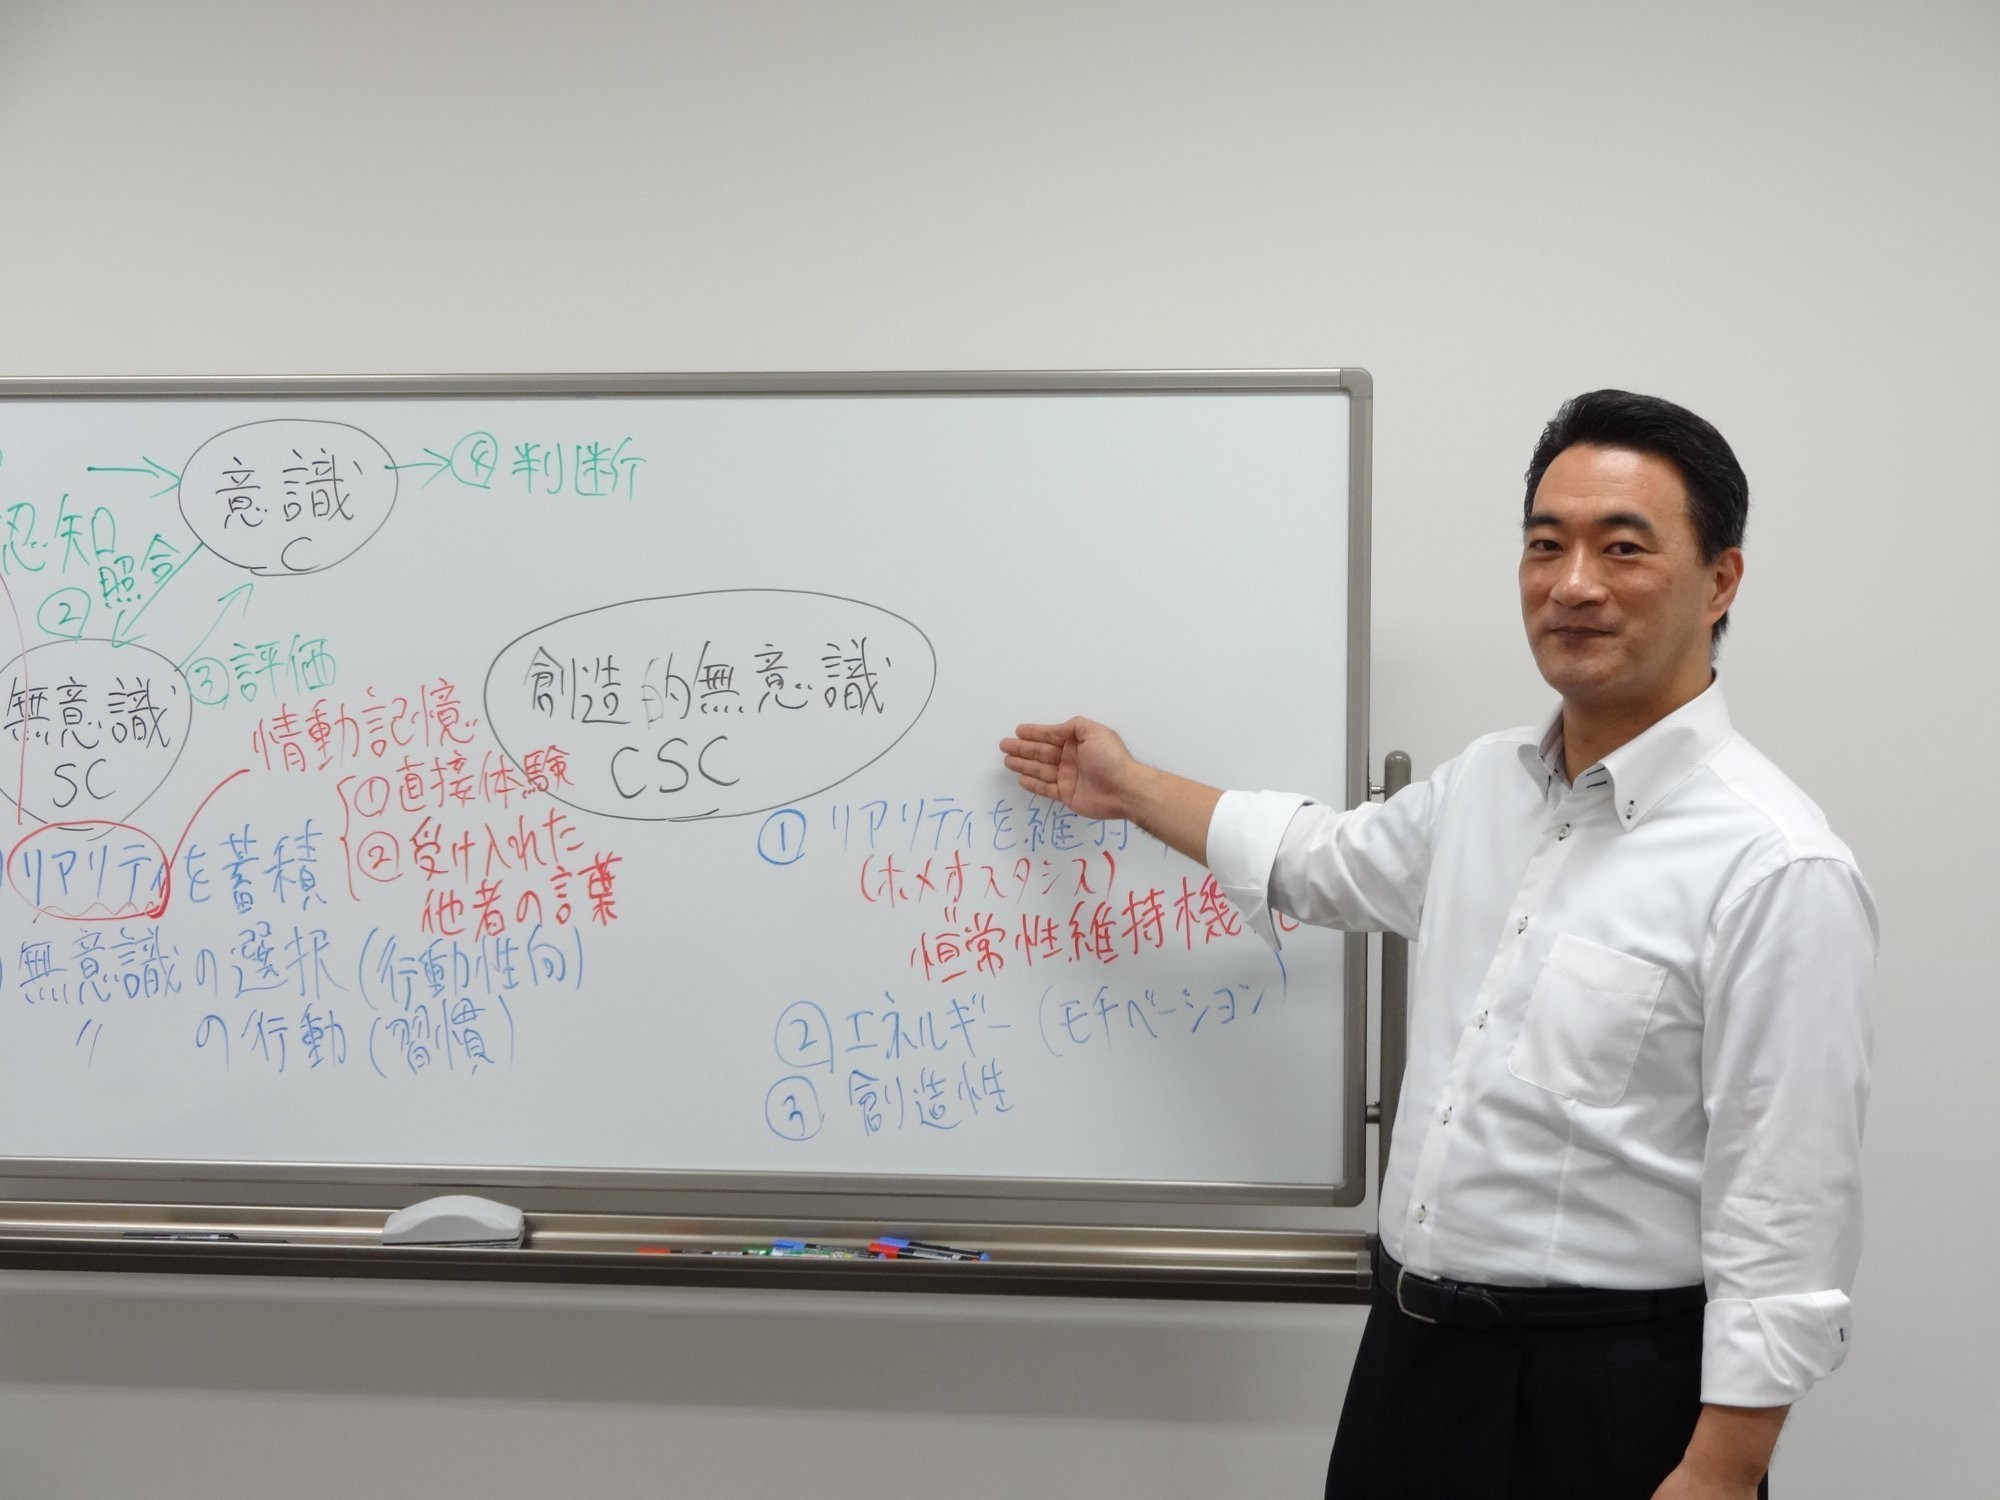 意識
C
④ 判断
認知
② 照合
③ 評価
無意識
SC
創造的無意識
CSC
情動記憶
① 直接体験
② 受け入れた
他者の言葉
リアリティを蓄積
無意識の選択(行動性向)
〃 の行動(習慣)
① リアリティを維持
(ホメオスタシス)
恒常性維持機
② エネルギー(モチベーション)
③ 創造性